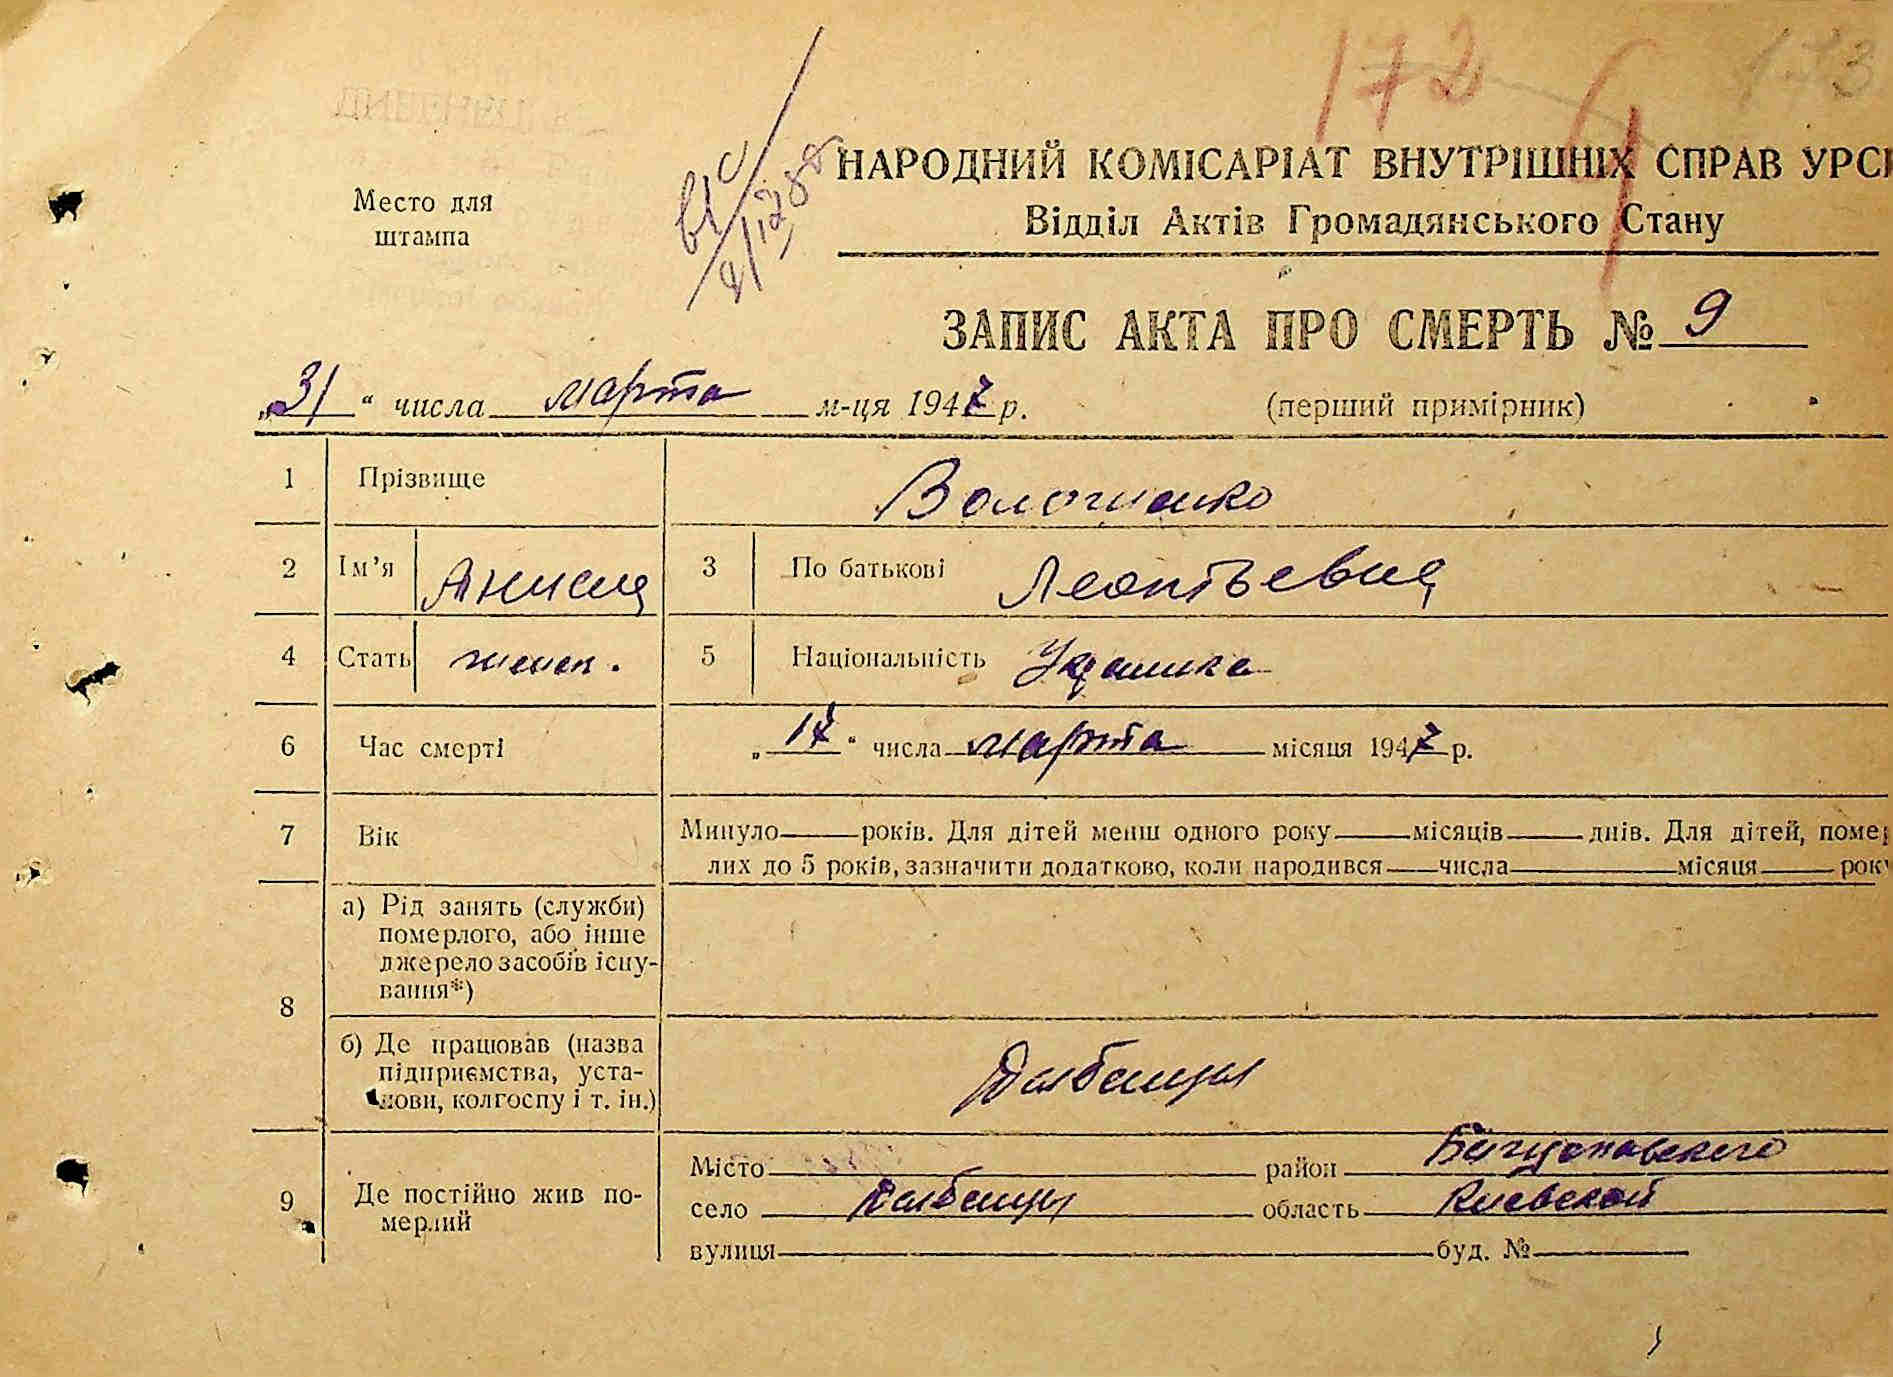 172 173
Место для
штампа
НАРОДНИЙ КОМІСАРІАТ ВНУТРІШНІХ СПРАВ УРСР
Відділ Актів Громадянського Стану
ЗАПИС АКТА ПРО СМЕРТЬ № 9
„31“ числа марта м-ця 1947 р. (перший примірник)
1 Прізвище
2 Ім’я Анисия 3 По батькові Леонтьевна
4 Стать женск. 5 Національність Украинка
6 Час смерті „17“ числа марта місяця 1947 р.
7 Вік Минуло років. Для дітей менш одного року місяців днів. Для дітей, помер
лих до 5 років, зазначити додатково, коли народився числа місяця року
8 а) Рід занять (служби)
померлого, або інше
джерело засобів існу-
вання*)
б) Де працював (назва
підприємства, уста-
нови, колгоспу і т. ін.)
9 Де постійно жив по-
мерлий
Місто район
село область Киевской
вулиця буд. №